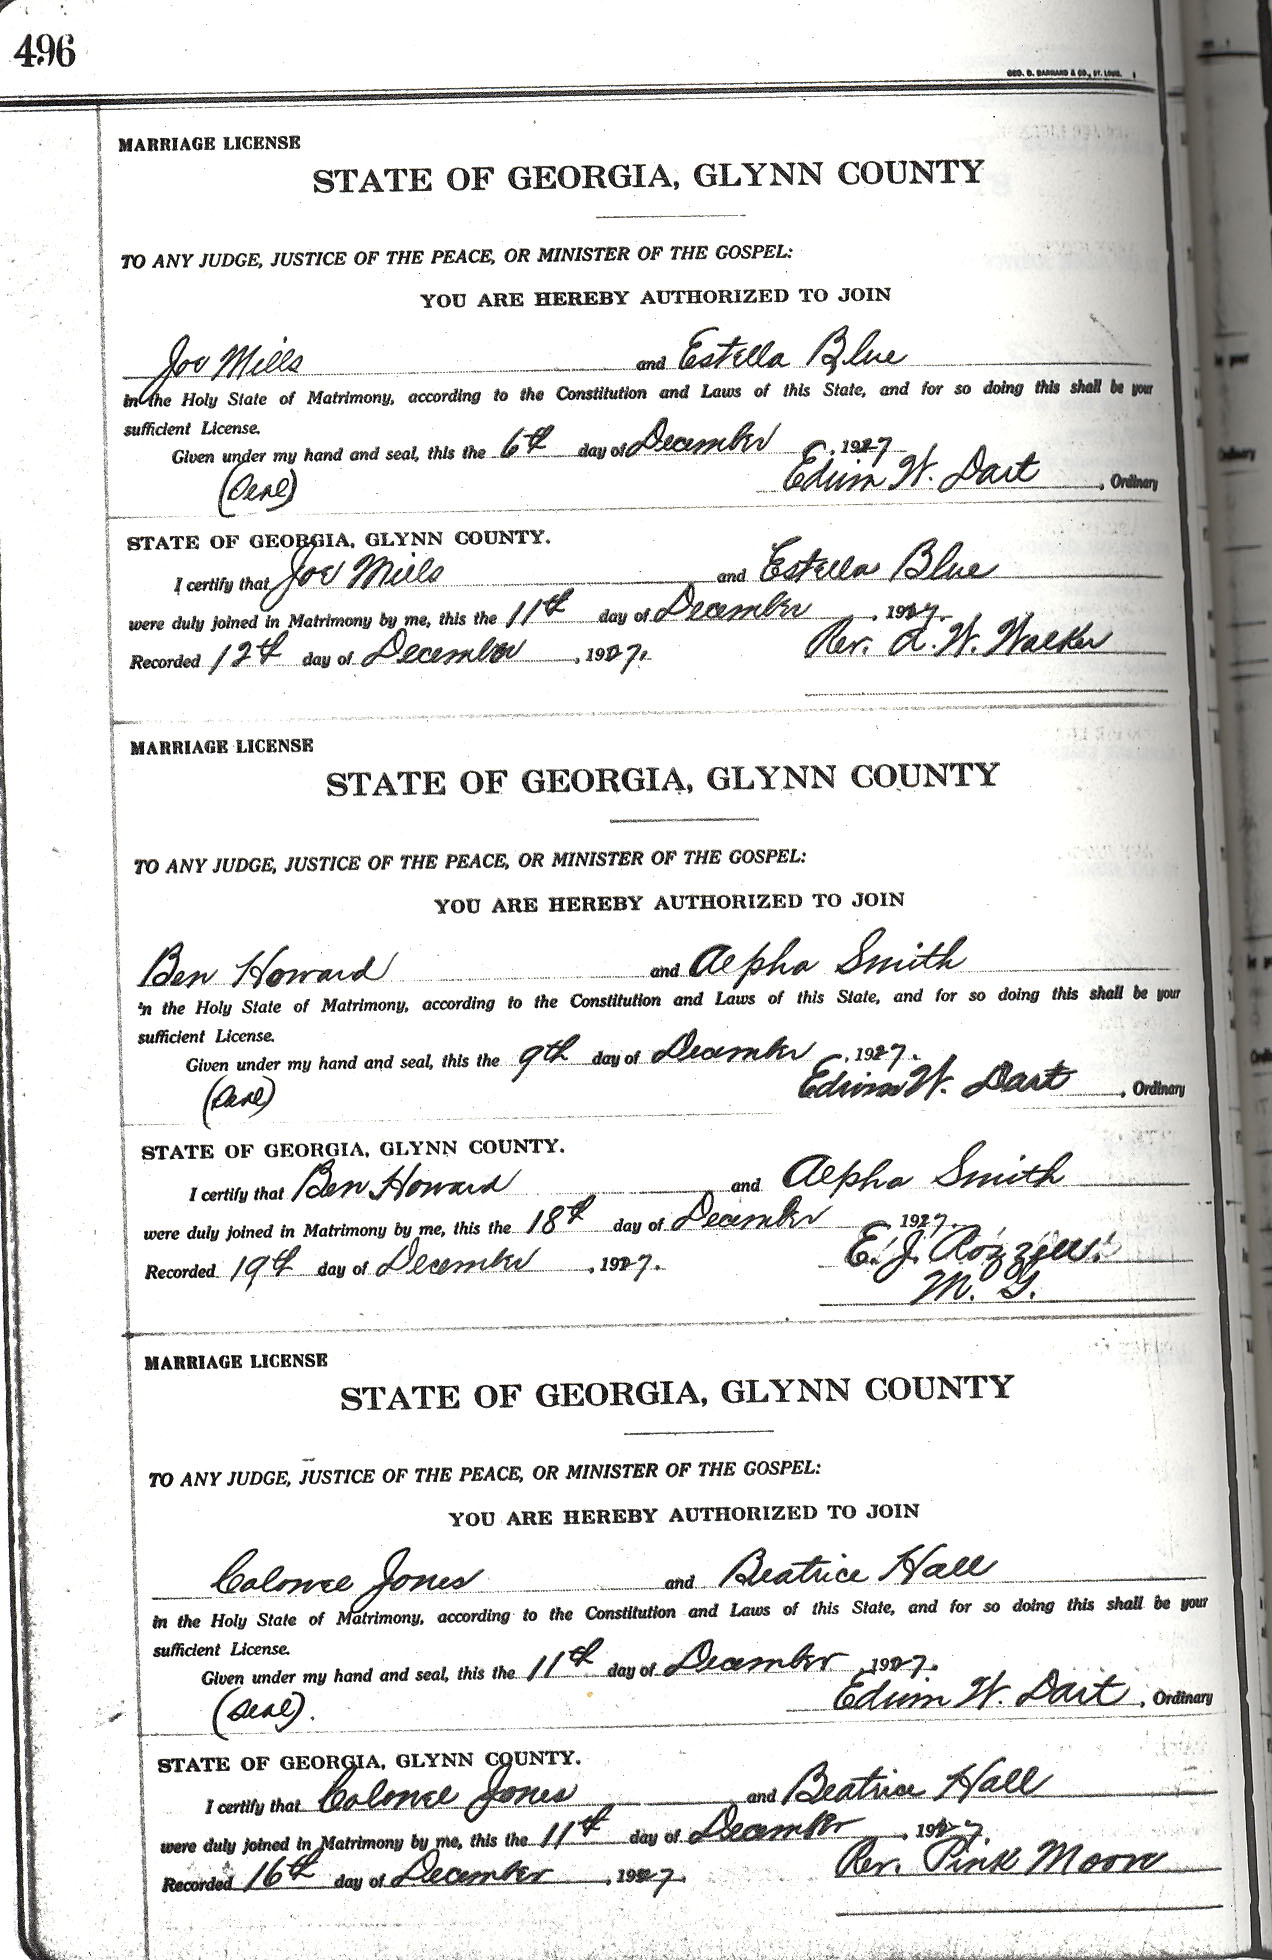 496
GEO. D. BARNARD & CO., ST. LOUIS.
MARRIAGE LICENSE
STATE OF GEORGIA, GLYNN COUNTY
TO ANY JUDGE, JUSTICE OF THE PEACE, OR MINISTER OF THE GOSPEL:
YOU ARE HEREBY AUTHORIZED TO JOIN
Joe Mills and Estella Blue
in the Holy State of Matrimony, according to the Constitution and Laws of this State, and for so doing this shall be your
sufficient License.
Given under my hand and seal, this the 6th day of December, 1927
(Seal) Edwin W. Dart, Ordinary
STATE OF GEORGIA, GLYNN COUNTY.
I certify that Joe Mills and Estella Blue
were duly joined in Matrimony by me, this the 11th day of December, 1927.
Recorded 12th day of December, 1927. Rev. L. W. Walker
MARRIAGE LICENSE
STATE OF GEORGIA, GLYNN COUNTY
TO ANY JUDGE, JUSTICE OF THE PEACE, OR MINISTER OF THE GOSPEL:
YOU ARE HEREBY AUTHORIZED TO JOIN
Ben Howard and Alpha Smith
in the Holy State of Matrimony, according to the Constitution and Laws of this State, and for so doing this shall be your
sufficient License.
Given under my hand and seal, this the 9th day of December, 1927.
(Seal) Edwin W. Dart, Ordinary
STATE OF GEORGIA, GLYNN COUNTY.
I certify that Ben Howard and Alpha Smith
were duly joined in Matrimony by me, this the 18th day of December, 1927.
Recorded 19th day of December, 1927. E. J.
M. G.
MARRIAGE LICENSE
STATE OF GEORGIA, GLYNN COUNTY
TO ANY JUDGE, JUSTICE OF THE PEACE, OR MINISTER OF THE GOSPEL:
YOU ARE HEREBY AUTHORIZED TO JOIN
Colonel Jones and Beatrice Hall
in the Holy State of Matrimony, according to the Constitution and Laws of this State, and for so doing this shall be your
sufficient License.
Given under my hand and seal, this the 11th day of December, 1927.
(Seal). Edwin W. Dart, Ordinary
STATE OF GEORGIA, GLYNN COUNTY.
I certify that Colonel Jones and Beatrice Hall
were duly joined in Matrimony by me, this the 11th day of December, 1927.
Recorded 16th day of December, 1927. Rev. Pink Moore